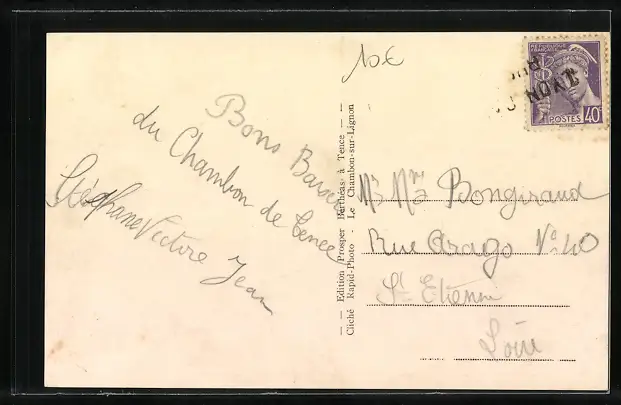 10€
Bons Baisers
du Chambon de Tence
Stéphane Victore Jean
— — Edition Prosper Barthéas à Tence — —
Cliché Rapid-Photo - Le Chambon-sur-Lignon
REPUBLIQUE FRANÇAISE
POSTES 40
Mr Mme Bongiraud
Rue Arago N° 40
St Etienne
Loire